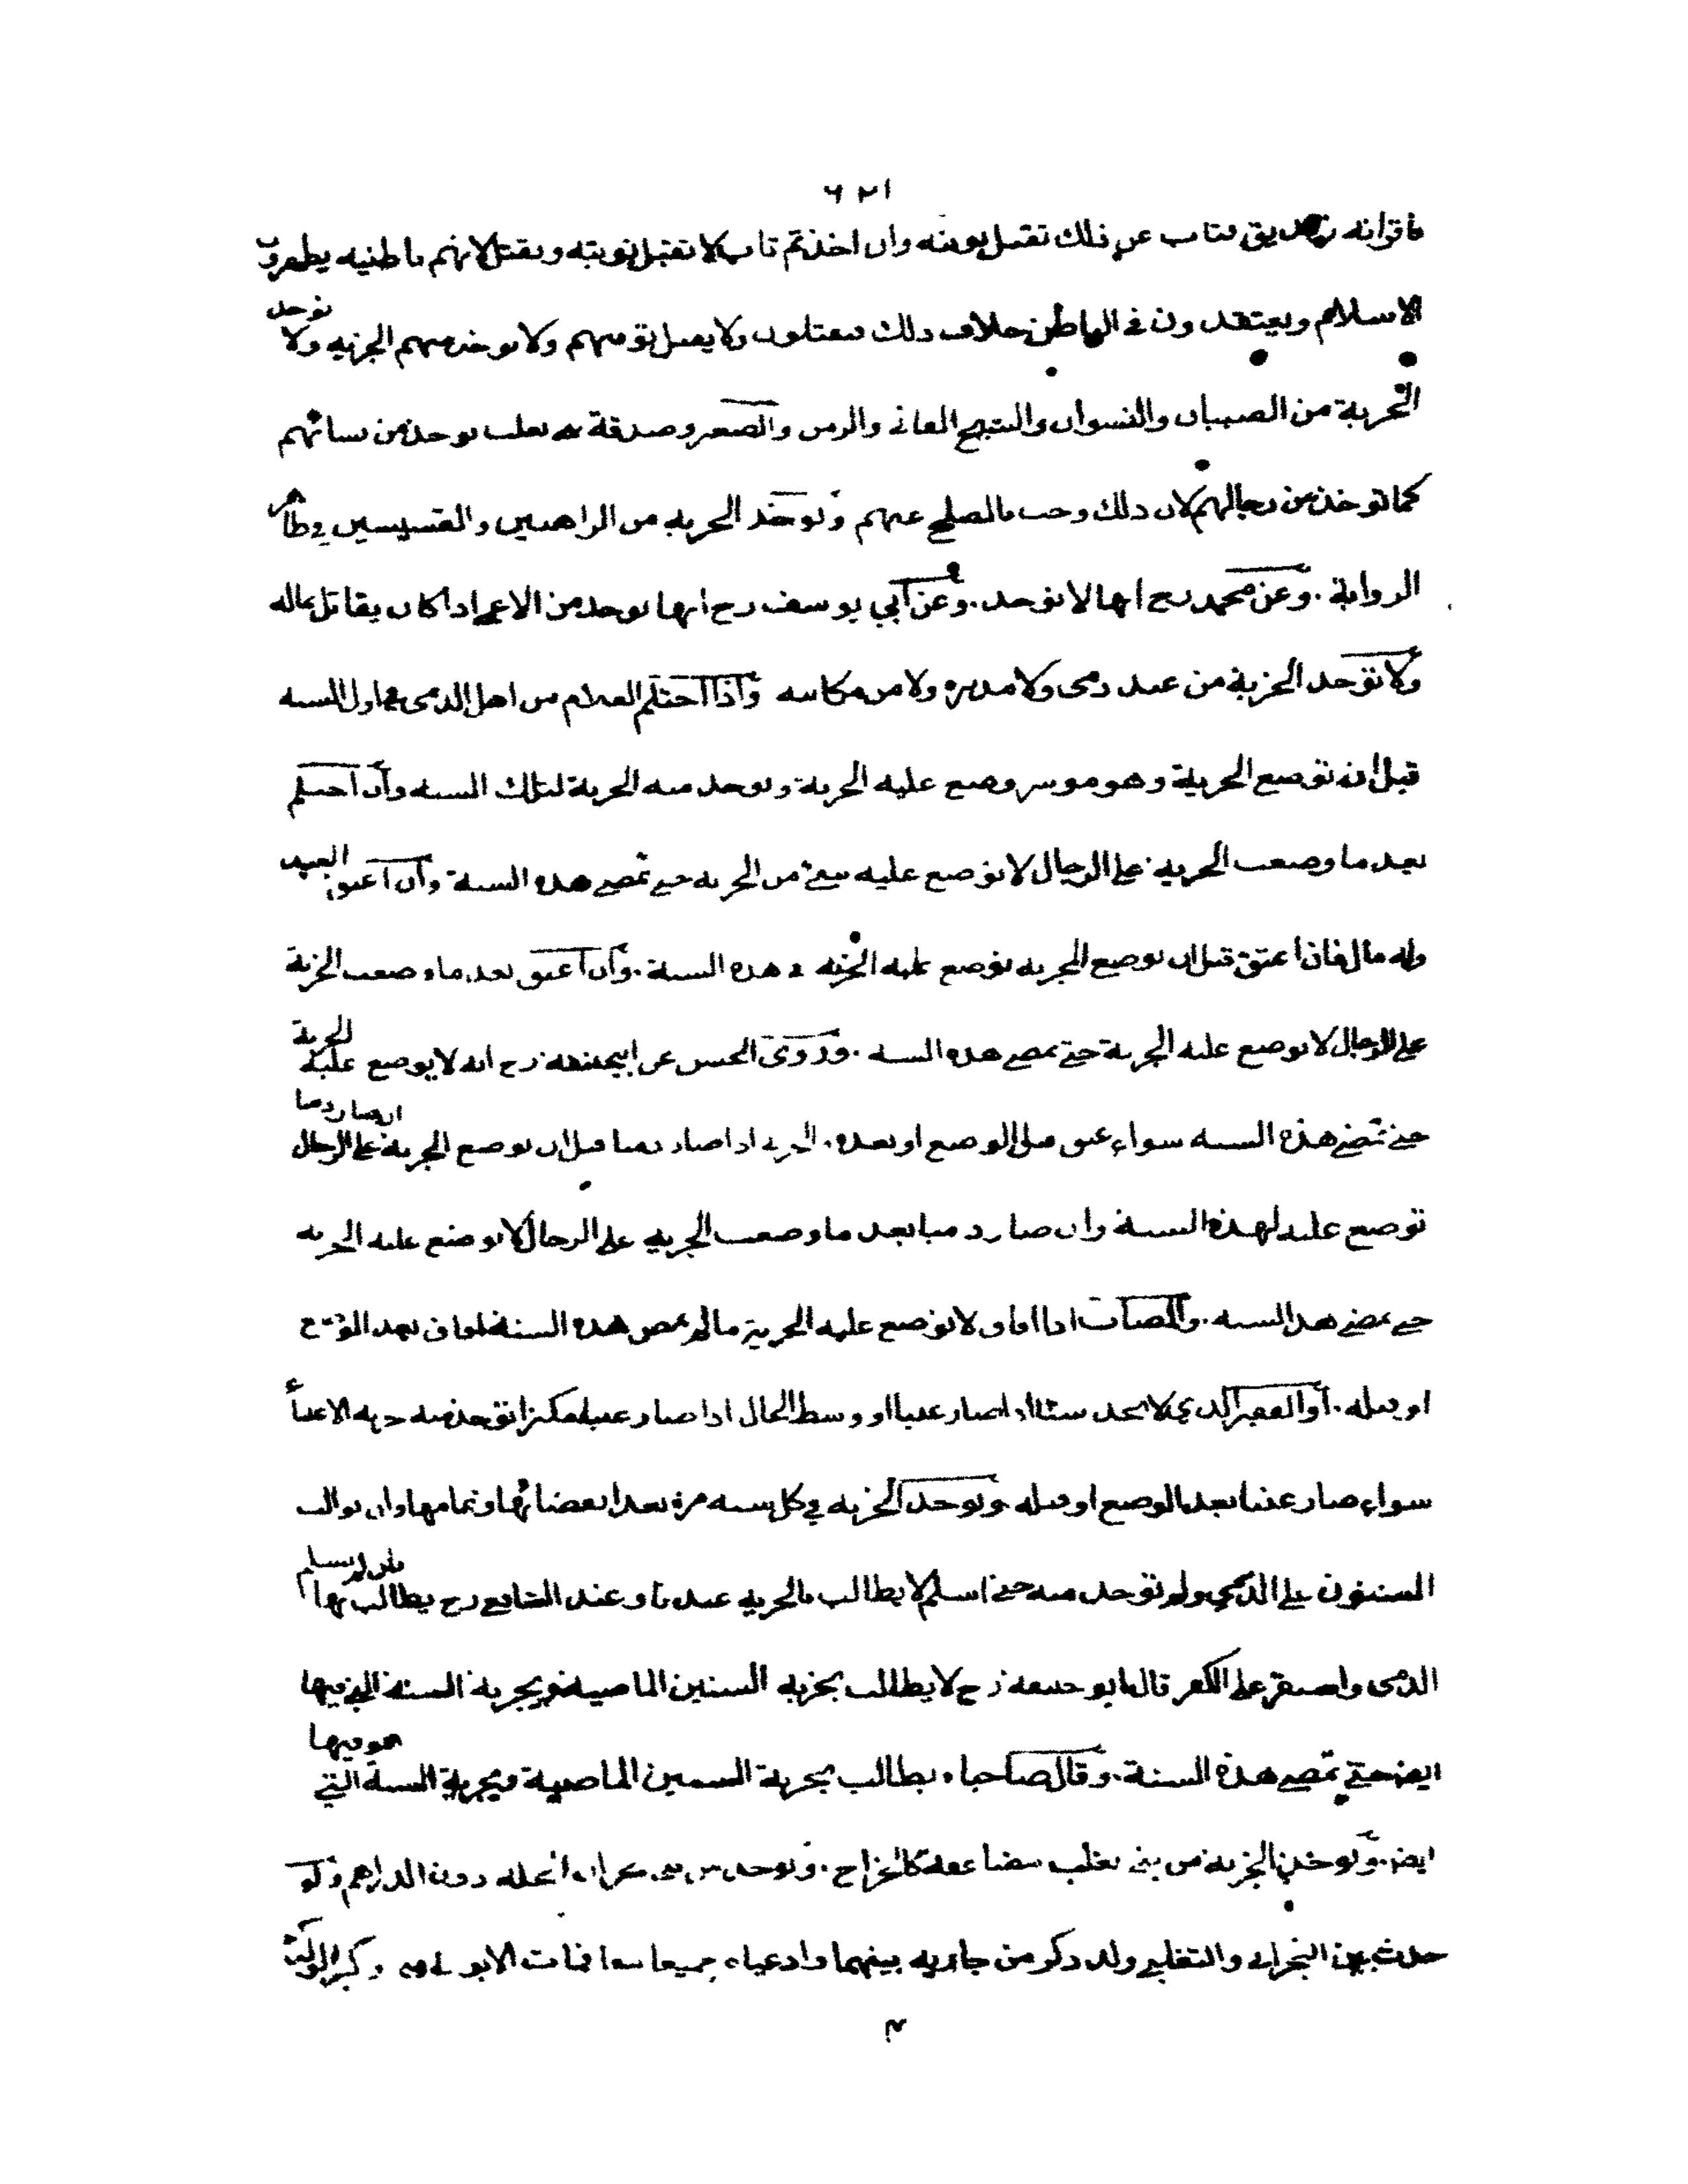 ٦٢١
فاقر انه زنديق فتاب عن ذلك تقبل توبته وان اخذ ثم تاب لا تقبل توبته ويقتل لانهم باطنيه يظهرون
الاسلام ويعتقدون في الباطن خلاف ذلك فيقتلون ولا يقبل توبتهم ولا يوخذ منهم الجزيه ولا توخذ
الجزية من الصبيان والنسوان والشيخ الفاني والزمن والصغير وصدقة بني تغلب يوخذ من نسائهم
كما توخذ من رجالهم لان ذلك وجب بالصلح عنهم وتوخذ الجزيه من الراهبين والقسيسين في ظاهر
الرواية . وعن محمد رح انها لا توخذ . وعن ابي يوسف رح انها توخذ من الاعمى اذا كان يقاتل بماله
ولا توخذ الجزية من عبد ذمي ولا مدبره ولا من مكاتبه واذا احتلم الغلام من اهل الذمي في اول السنه
قبل ان توضع الجزية وهو موسر وضع عليه الجزية وتوخذ منه الجزية لتلك السنه وان احتلم
بعد ما وضعت الجزيه على الرجال لا توضع عليه شيء من الجزيه حتى تمضي هذه السنة وان اعتق العبد
وله مال فان اعتق قبل ان توضع الجزيه توضع عليه الجزيه في هذه السنة . وان اعتق بعد ما وضعت الجزية
على الرجال لا توضع عليه الجزية حتى تمضي هذه السنه . وروى الحسن عن ابيحنيفه رح انه لا يوضع عليه الجزية
حتى تمضي هذه السنه سواء عتق قبل الوضع او بعده . الحربي اذا صار ذميا ان صار ذميا قبل ان توضع الجزية على الرجال
توضع عليه لهذه السنة وان صار ذميا بعد ما وضعت الجزيه على الرجال لا توضع عليه الجزيه
حتى تمضي هذه السنه . والمصاب اذا افاق لا توضع عليه الجزية ما لم تمض هذه السنة افاق بعد الوضع
او قبله . او الفقير الذي لا يجد شيئا اذا صار غنيا او وسط الحال اذا صار غنيا توخذ منه جزيه الاغنيا
سواء صار غنيا بعد الوضع او قبله وتوخذ الجزيه في كل سنه مرة بعد انقضائها وتمامها وان توالت
السنون على الذمي ولم توخذ منه حتى اسلم لا يطالب بالجزيه عندنا وعند الشافعي رح يطالب بها فان لم يسلم
الذمي واستقر على الكفر قال ابو حنيفه رح لا يطالب بجزيه السنين الماضية وبجزية السنة التي فيها
ايضا حتى تمضي هذه السنة . وقال صاحباه يطالب بجزية السنين الماضية وبجزية السنة التي هو فيها
ايضا . وتوخذ الجزية من بني تغلب مضاعفة كالخراج . وتوخذ من بني نجران الحلة دون الدراهم ولو
حدث بين النجراني والتغلبي ولد ذكر من جاريه بينهما وادعياه جميعا معا فمات الابوان وكبر الولد